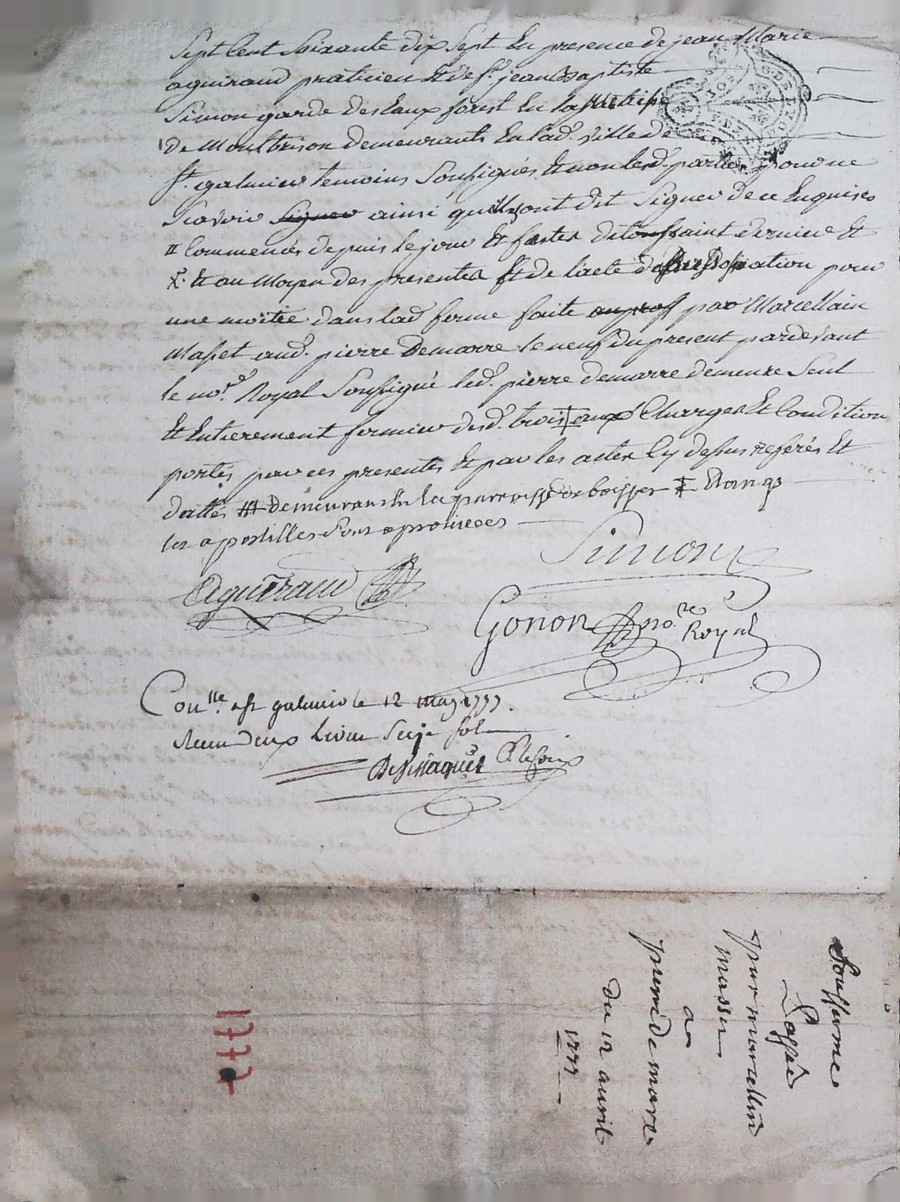 Sept Cent Soixante dix Sept En presence de jean Marie
aguiraud praticien Et de Sr. jean Baptiste
Simon garde des Eaux forest En la Metrise
De Montbrison demeurants En lad. ville de
St. galmier temoins Soussignés Et non led. pierre
Scavoir Signer ainsi quils ont dit Signer de ce Enquises
Commencés depuis le jour Et festes de toussaint derniere Et
Et au Moyen des presentes Et de lacte de pour
une moitié dans lad. ferme faite par Marcellain
Masset aud. pierre Demarre le neuf du present pardevant
le nore. Royal Soussigné led. pierre demarre demeure Seul
Et Entierement fermier desd. trois aux Charges Et Condition
portés par ces presentes Et par les actes Cy dessus referés Et
dattés Demeurans En la parroisse de boisset Etangs
les apostilles Sont aprouvees
Simon
aguiraud
Gonon nore. Royal
Conlle. a St galmier le 12 may 1777.
Receu deux Livres Seize sols
Soufferme
passé
par marcellin
masset
a
pierre demare
du 12 avril
1777
1777